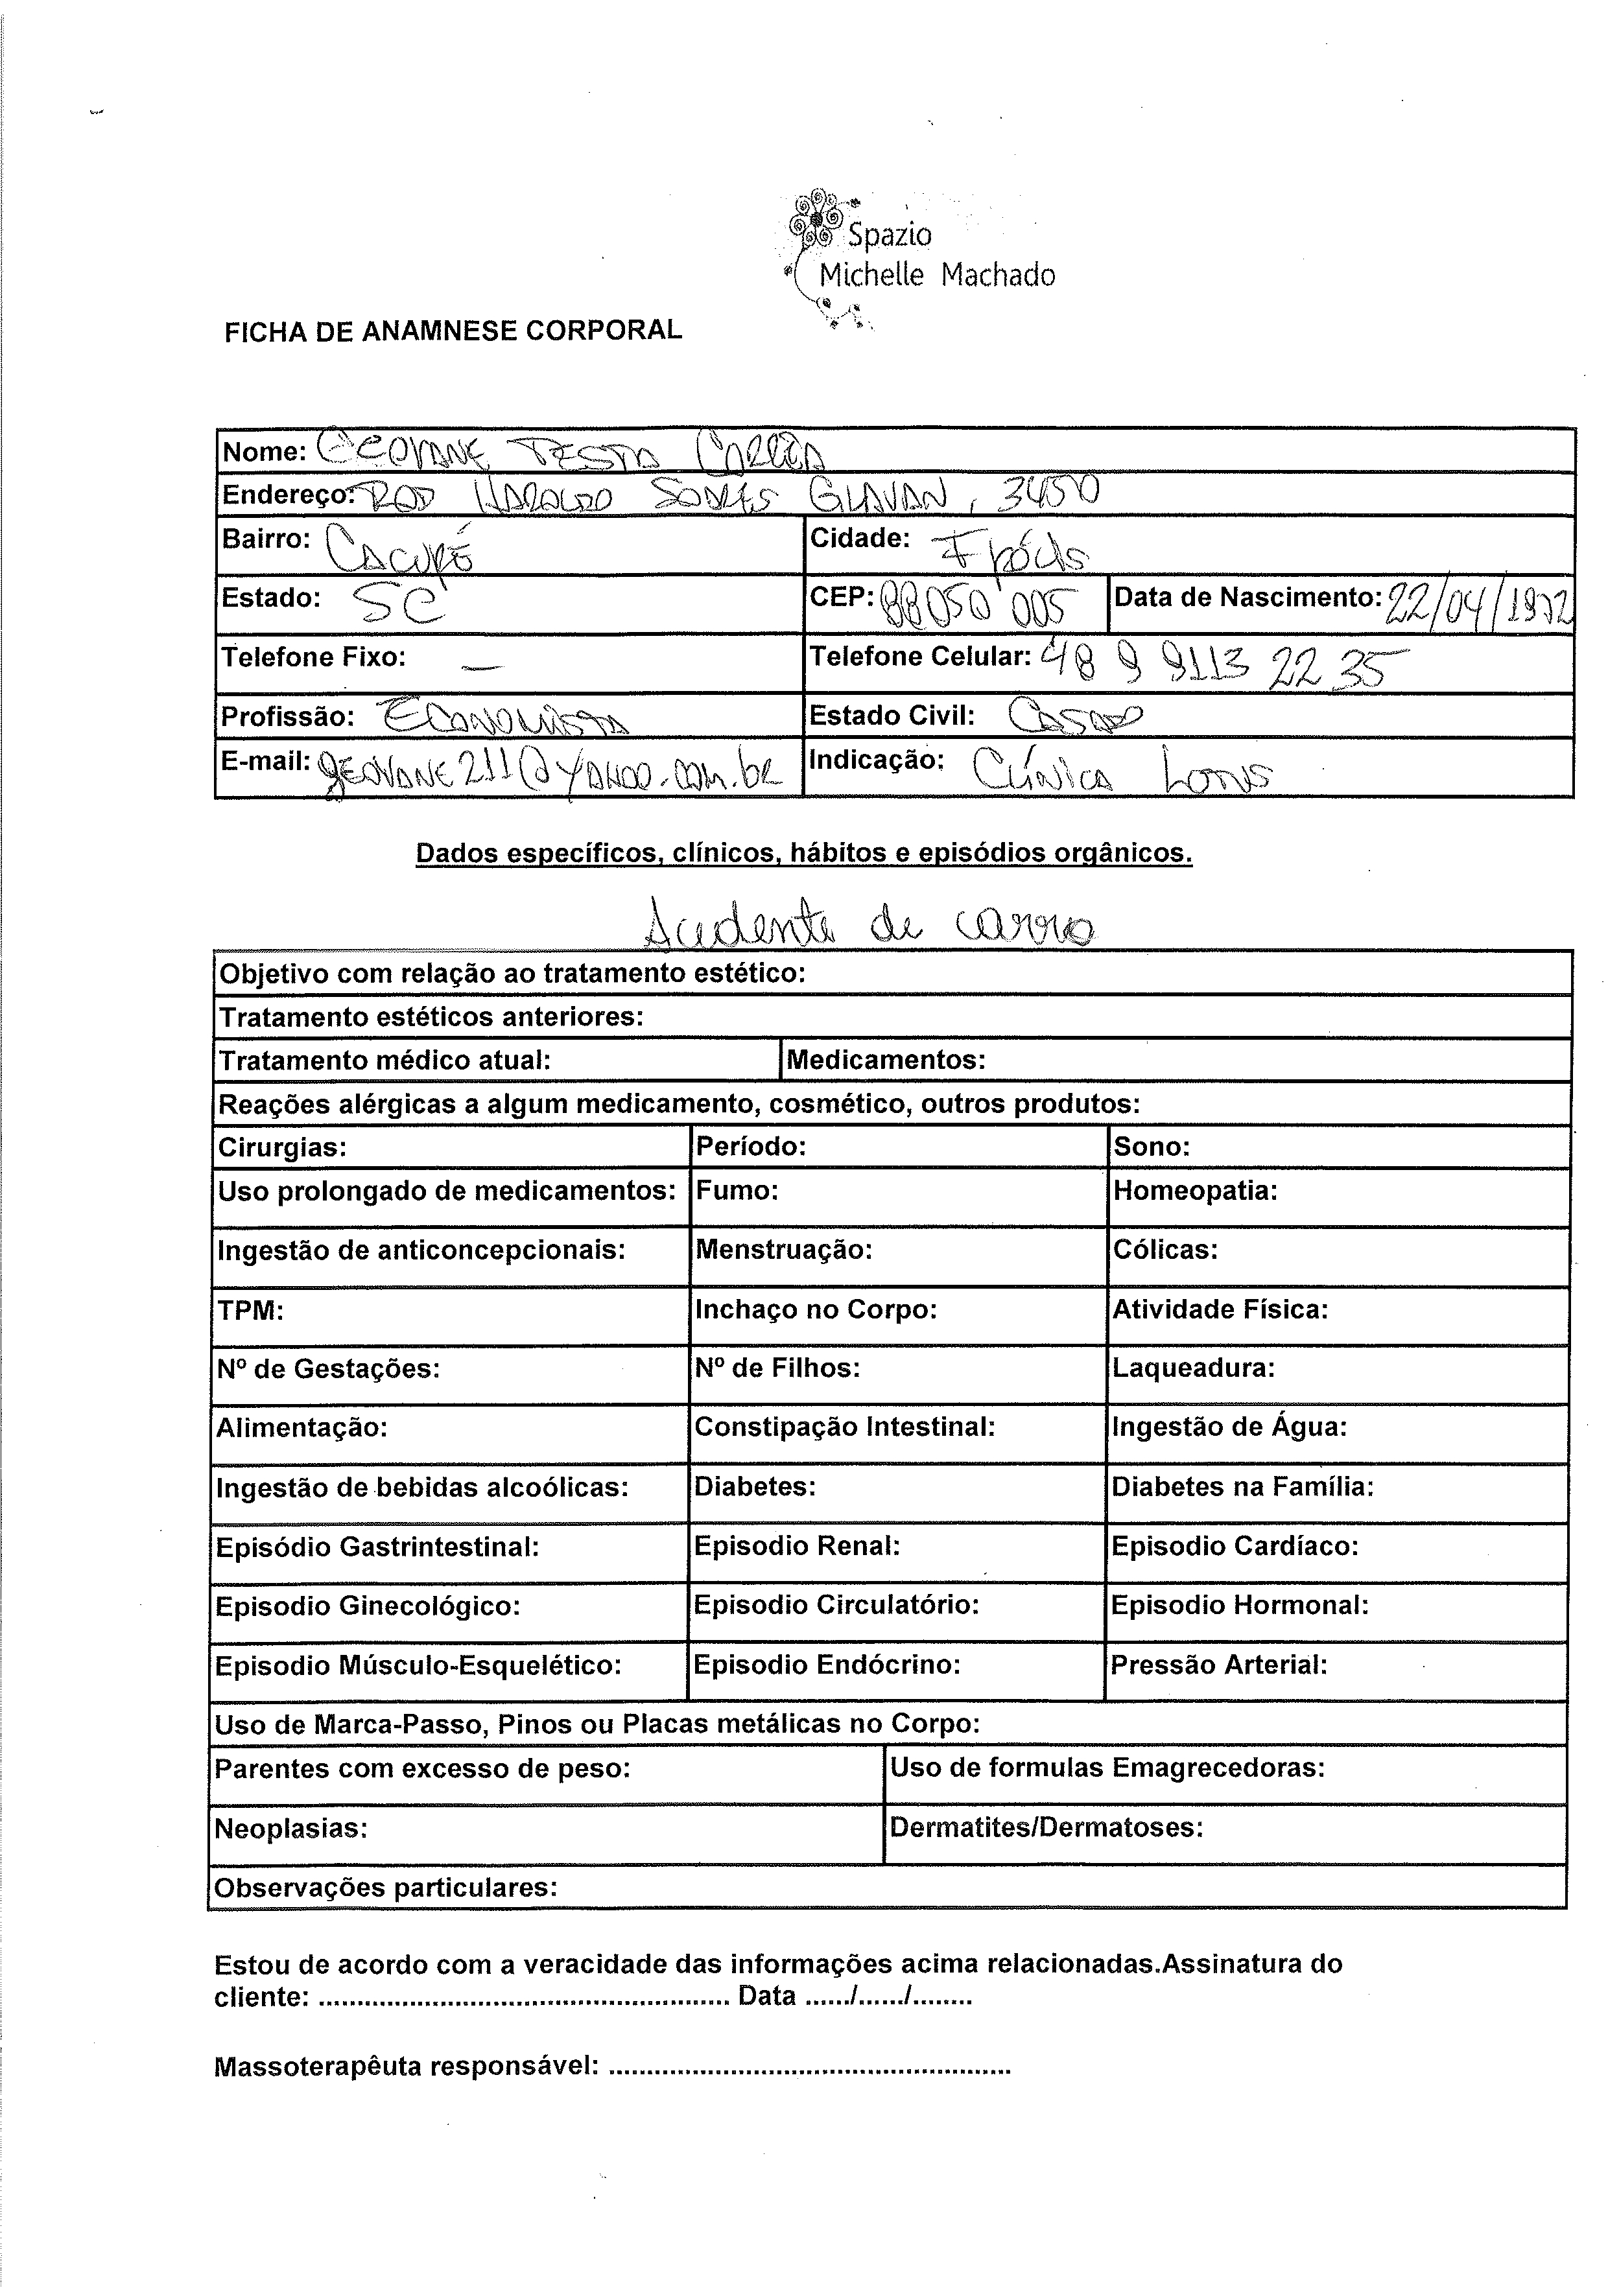 Spazio
Michelle Machado
FICHA DE ANAMNESE CORPORAL
Nome: GEOVANE TESTA CORRÊA
Endereço: ROD HAROLDO SOARES GLAVAN, 3450
Bairro: CACUPÉ Cidade: Fpólis
Estado: SC CEP: 88050 005 Data de Nascimento: 22/04/1972
Telefone Fixo: — Telefone Celular: 48 9 9113 22 35
Profissão: ECONOMISTA Estado Civil: CASADO
E-mail: GEOVANE211@YAHOO.COM.br Indicação: CLÍNICA
Dados específicos, clínicos, hábitos e episódios orgânicos.
Acidente de carro
Objetivo com relação ao tratamento estético:
Tratamento estéticos anteriores:
Tratamento médico atual: Medicamentos:
Reações alérgicas a algum medicamento, cosmético, outros produtos:
Cirurgias: Período: Sono:
Uso prolongado de medicamentos: Fumo: Homeopatia:
Ingestão de anticoncepcionais: Menstruação: Cólicas:
TPM: Inchaço no Corpo: Atividade Física:
Nº de Gestações: Nº de Filhos: Laqueadura:
Alimentação: Constipação Intestinal: Ingestão de Água:
Ingestão de bebidas alcoólicas: Diabetes: Diabetes na Família:
Episódio Gastrintestinal: Episodio Renal: Episodio Cardíaco:
Episodio Ginecológico: Episodio Circulatório: Episodio Hormonal:
Episodio Músculo-Esquelético: Episodio Endócrino: Pressão Arterial:
Uso de Marca-Passo, Pinos ou Placas metálicas no Corpo:
Parentes com excesso de peso: Uso de formulas Emagrecedoras:
Neoplasias: Dermatites/Dermatoses:
Observações particulares:
Estou de acordo com a veracidade das informações acima relacionadas.Assinatura do
cliente: ..................................................... Data ....../....../........
Massoterapêuta responsável: ....................................................